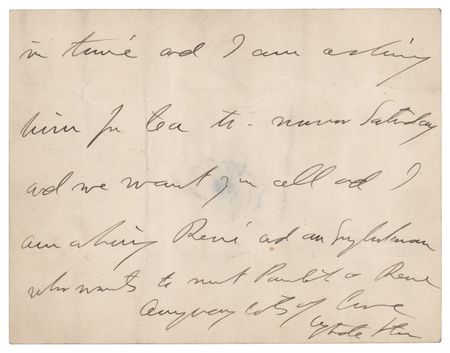 in time and I am asking
him for tea to-morrow Saturday
and we want you all and I
am asking René and an Englishman
who wants to meet Paulet & Rene
Anyway lots of love